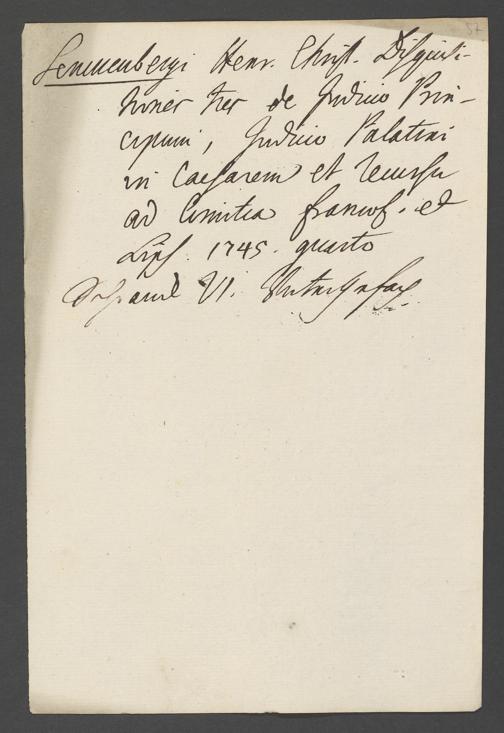 Senckenbergi Henr. Christ. Disquisi-
tiones tres de Judicio Prin-
cipum, Judicio Palatini
in Caesarem et recursu
ad Comitia francof. et
Lips. 1745. quarto
VI.